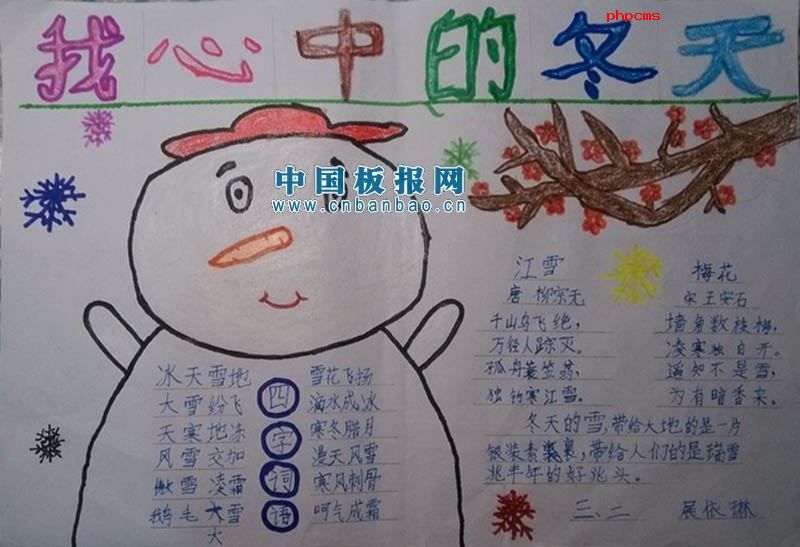 phpcms
我心中的冬天
中国板报网
www.cnbanbao.cn
四字词语
冰天雪地
大雪纷飞
天寒地冻
风雪交加
傲雪凌霜
鹅毛大雪
大
雪花飞扬
滴水成冰
寒冬腊月
漫天风雪
寒风刺骨
呵气成霜
江雪
唐 柳宗元
千山鸟飞绝，
万径人踪灭。
孤舟蓑笠翁，
独钓寒江雪。
梅花
宋 王安石
墙角数枝梅，
凌寒独自开。
遥知不是雪，
为有暗香来。
冬天的雪，带给大地的是一片
银装素裹，带给人们的是瑞雪
兆丰年的好兆头。
三、二 展依琳